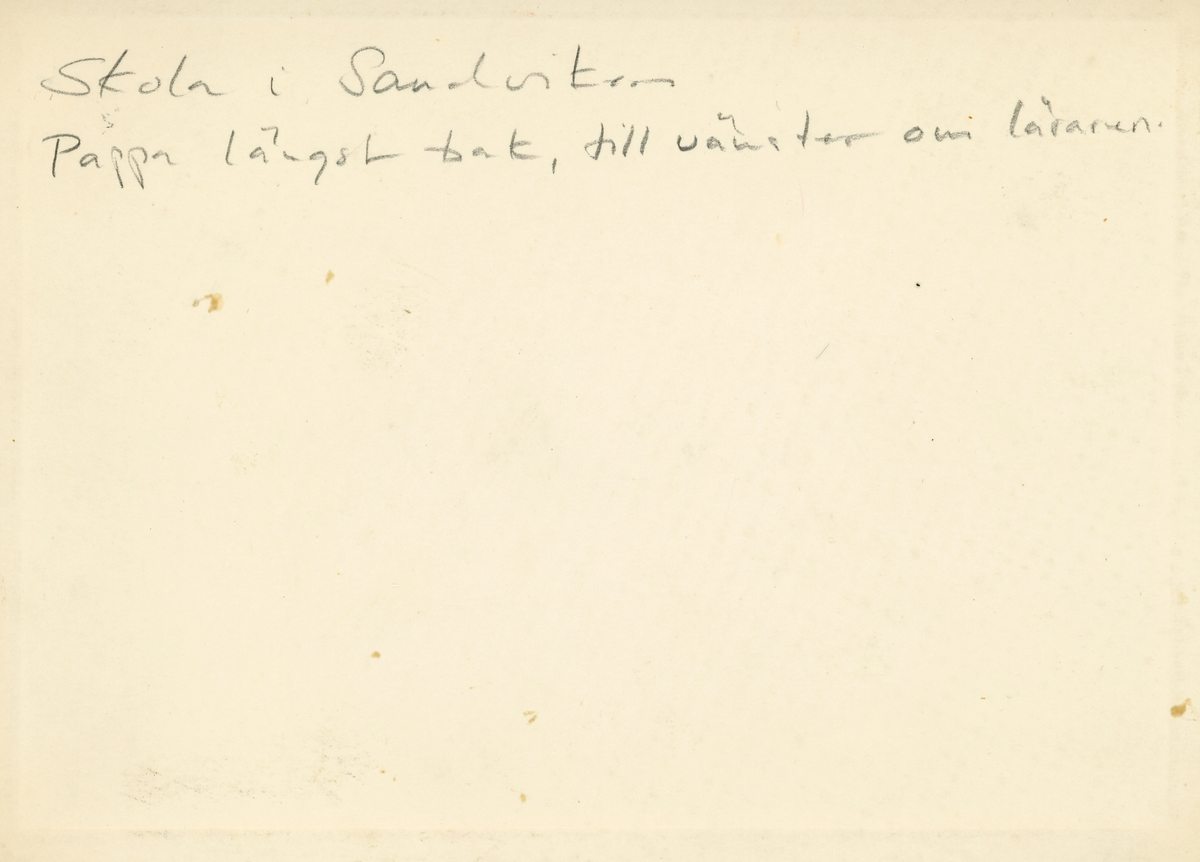 Skola i Sandviken
Pappa längst bak, till vänster om läraren.